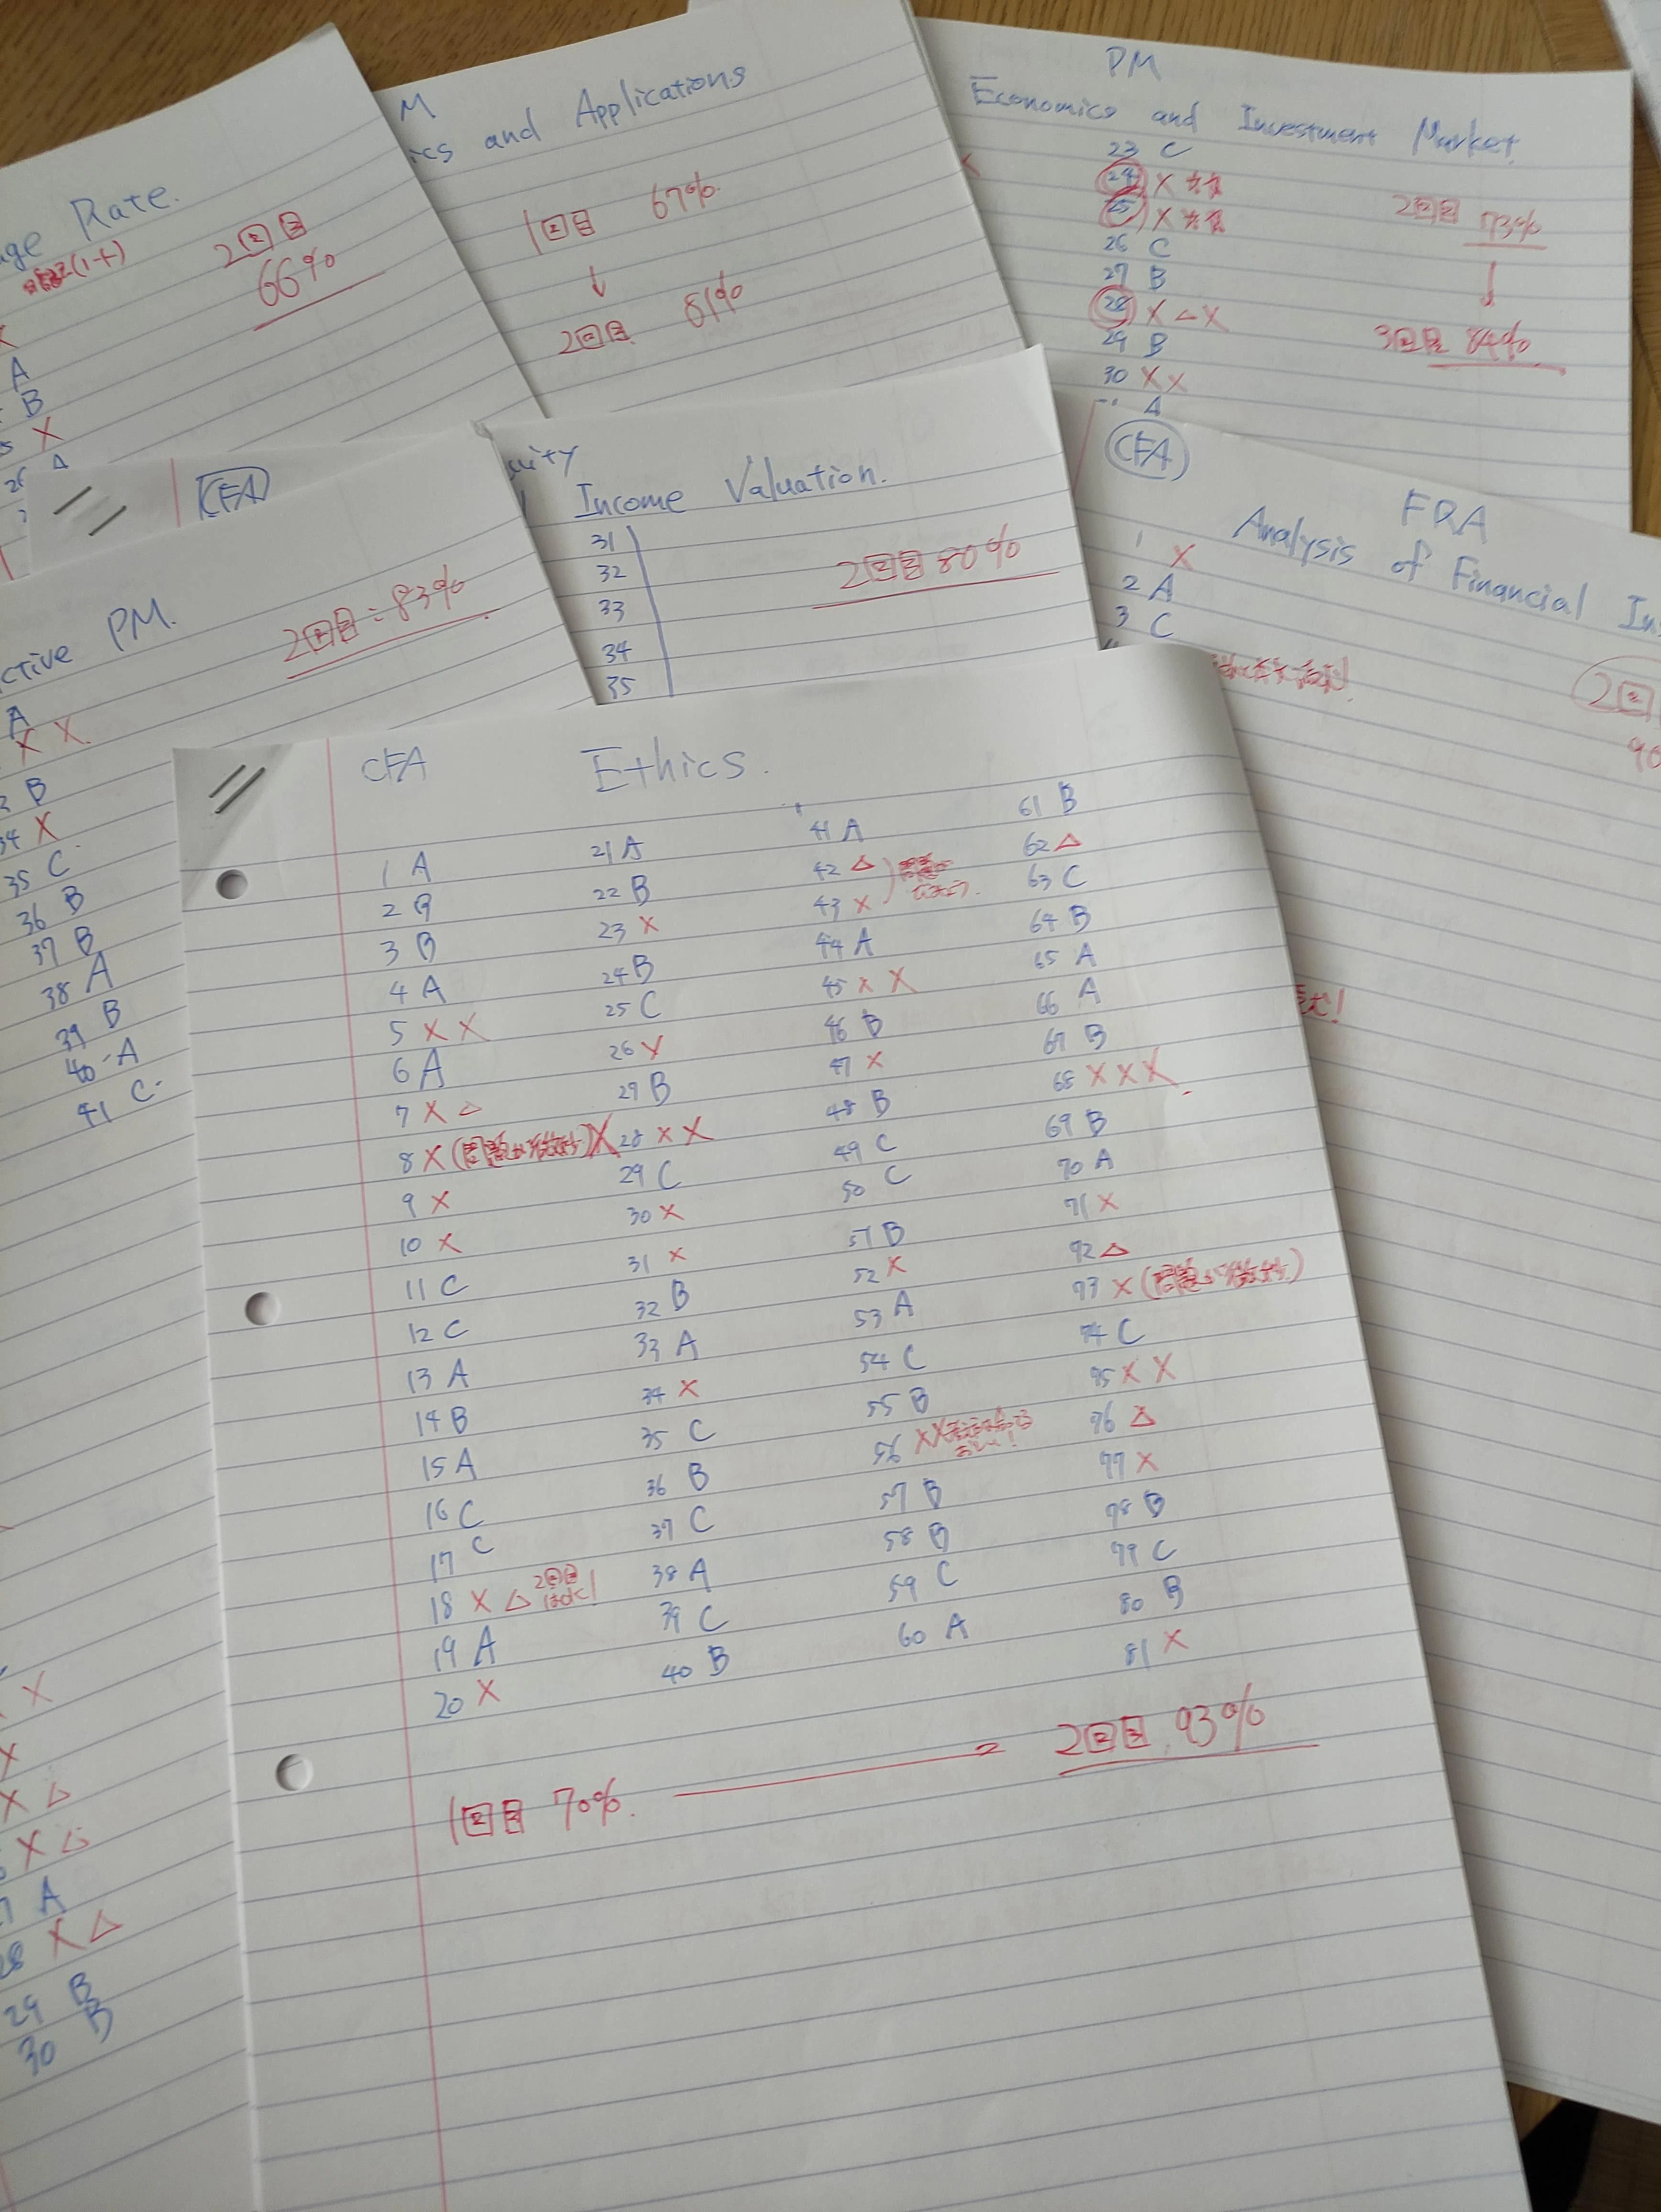 Rate.
2回目
66%
A
B
X
A
M
and Applications
1回目 67%
↓
2回目 81%
PM
Economics and Investment Market
23 C
24 X
25 X
26 C
27 B
28 X △ X
29 B
30 X X
A
2回目 73%
↓
3回目 84%
CFA
PM.
2回目: 83%
A
X X
B
34 X
35 C
36 B
37 B
38 A
39 B
40 A
41 C
Income Valuation.
31
32
33
34
35
2回目 80%
CFA
FRA
Analysis of Financial
1 X
2 A
3 C
CFA Ethics.
1 A
2 B
3 B
4 A
5 X X
6 A
7 X △
8 X (問題が微妙) X
9 X
10 X
11 C
12 C
13 A
14 B
15 A
16 C
17 C
18 X △ 2回目
19 A
20 X
21 A
22 B
23 X
24 B
25 C
26 X
27 B
28 X X
29 C
30 X
31 X
32 B
33 A
34 X
35 C
36 B
37 C
38 A
39 C
40 B
41 A
42 △
43 X
44 A
45 X X
46 B
47 X
48 B
49 C
50 C
51 B
52 X
53 A
54 C
55 B
56 X X
57 B
58 B
59 C
60 A
61 B
62 △
63 C
64 B
65 A
66 A
67 B
68 X X X
69 B
70 A
71 X
72 △
73 X (問題が微妙)
74 C
75 X X
76 △
77 X
78 B
79 C
80 B
81 X
1回目 70%. → 2回目 93%
X
X △
X △
A
28 X △
29 B
30 B